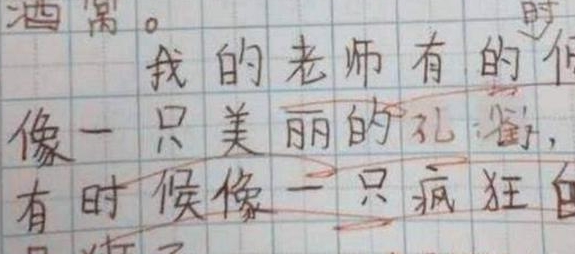 酒窝。
我的老师有的时
像一只美丽的孔
有时候像一只疯狂